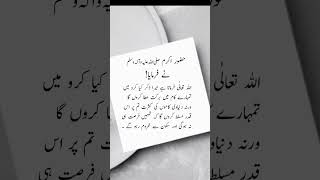 حضور اکرم صلی اللہ علیہ وآلہ وسلم
نے فرمایا!
اللہ تعالی فرماتا ہے میرا ذکر کیا کرو میں
تمہارے کام میں برکت عطا کروں گا
ورنہ دنیاوی کاموں کی کثرت تم پر اس
قدر مسلط کروں گا کہ تمہیں فرصت ہی
نہ ہوگی اور سکون سے محروم رہو گے۔